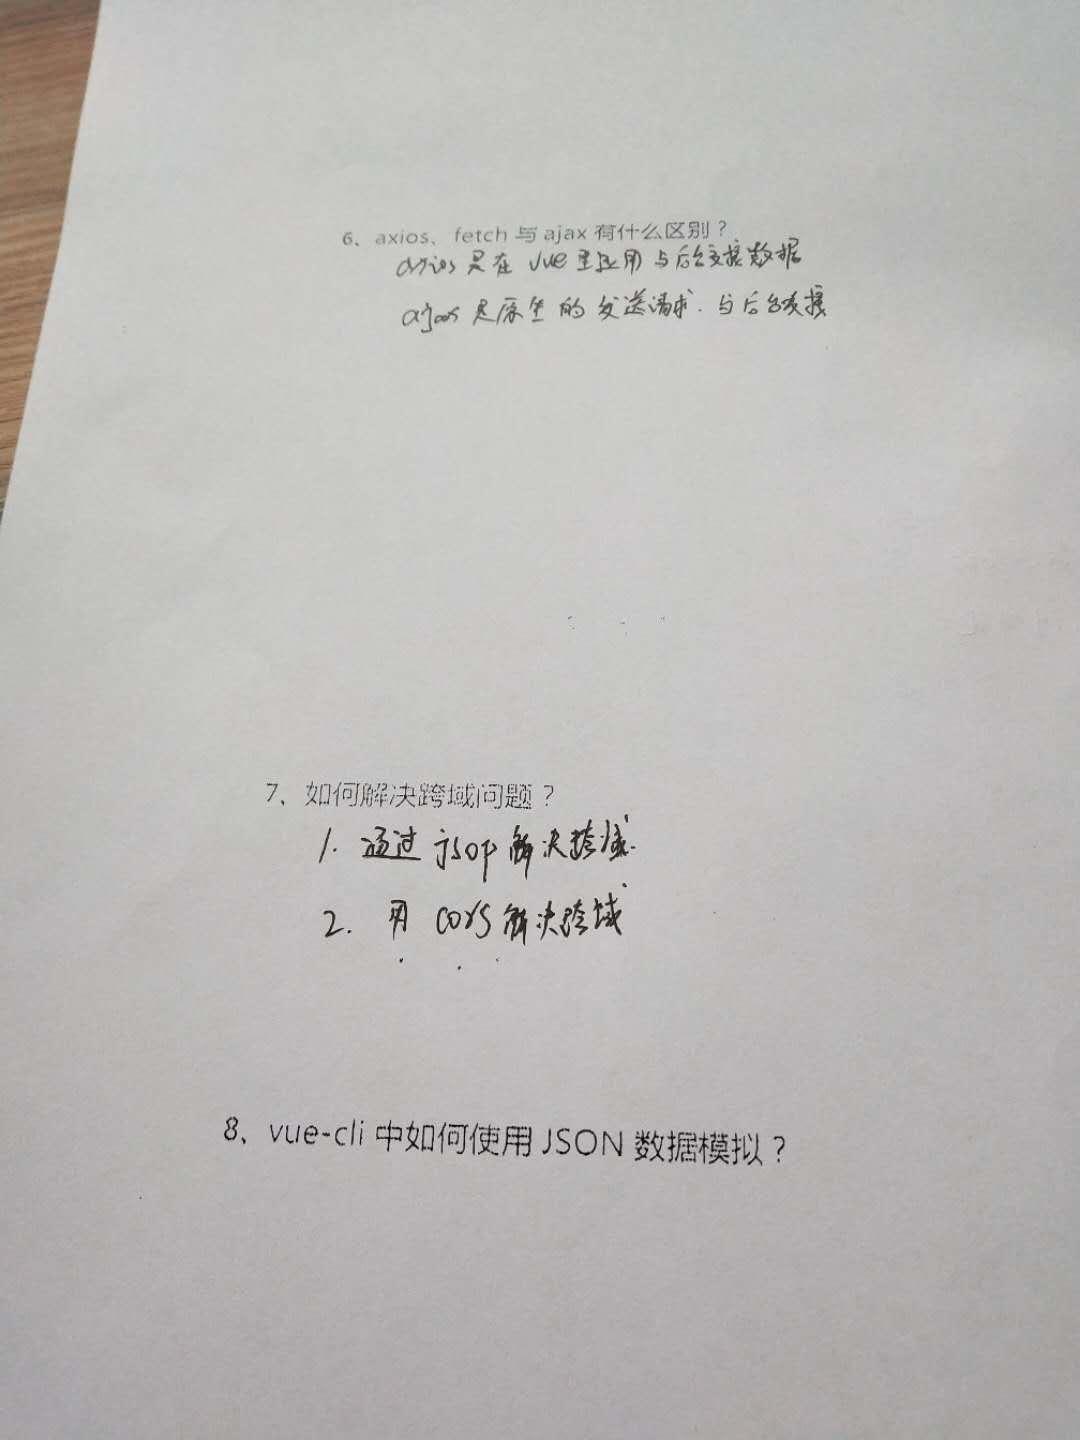 6、axios、fetch 与 ajax 有什么区别？
axios 是在 vue 里应用 与后台交接数据
ajax 是原生 的 发送请求. 与后台交接
7、如何解决跨域问题？
1. 通过 jsop 解决跨域.
2. 用 cors 解决跨域
8、vue-cli 中如何使用 JSON 数据模拟？